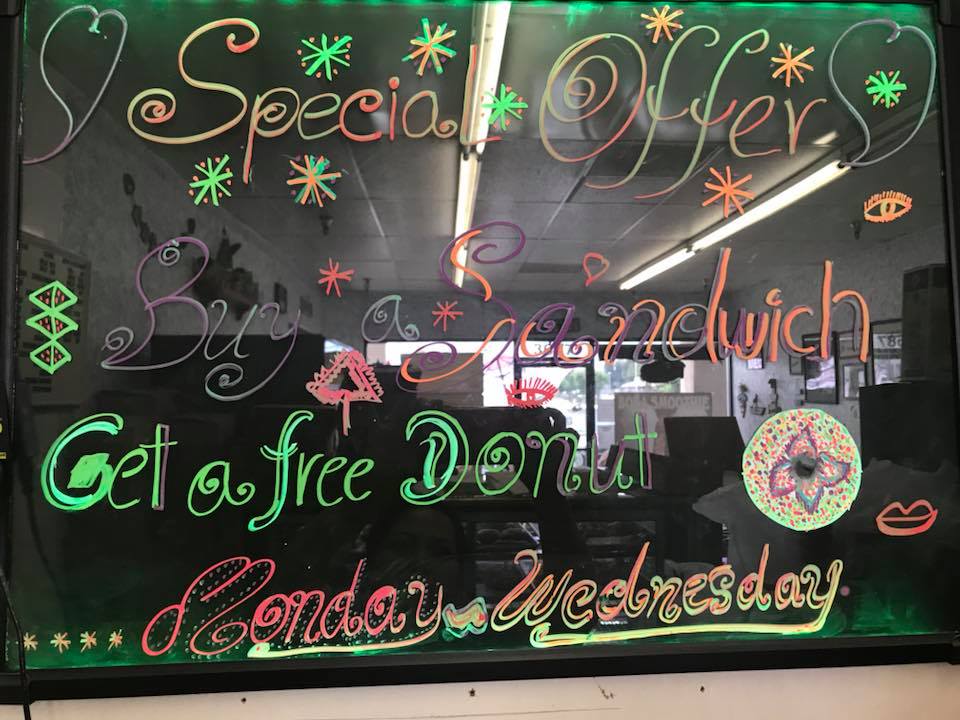 Special Offer
Buy a Sandwich
Get a free Donut
Monday ~ Wednesday
BOBA SMOOTHIE